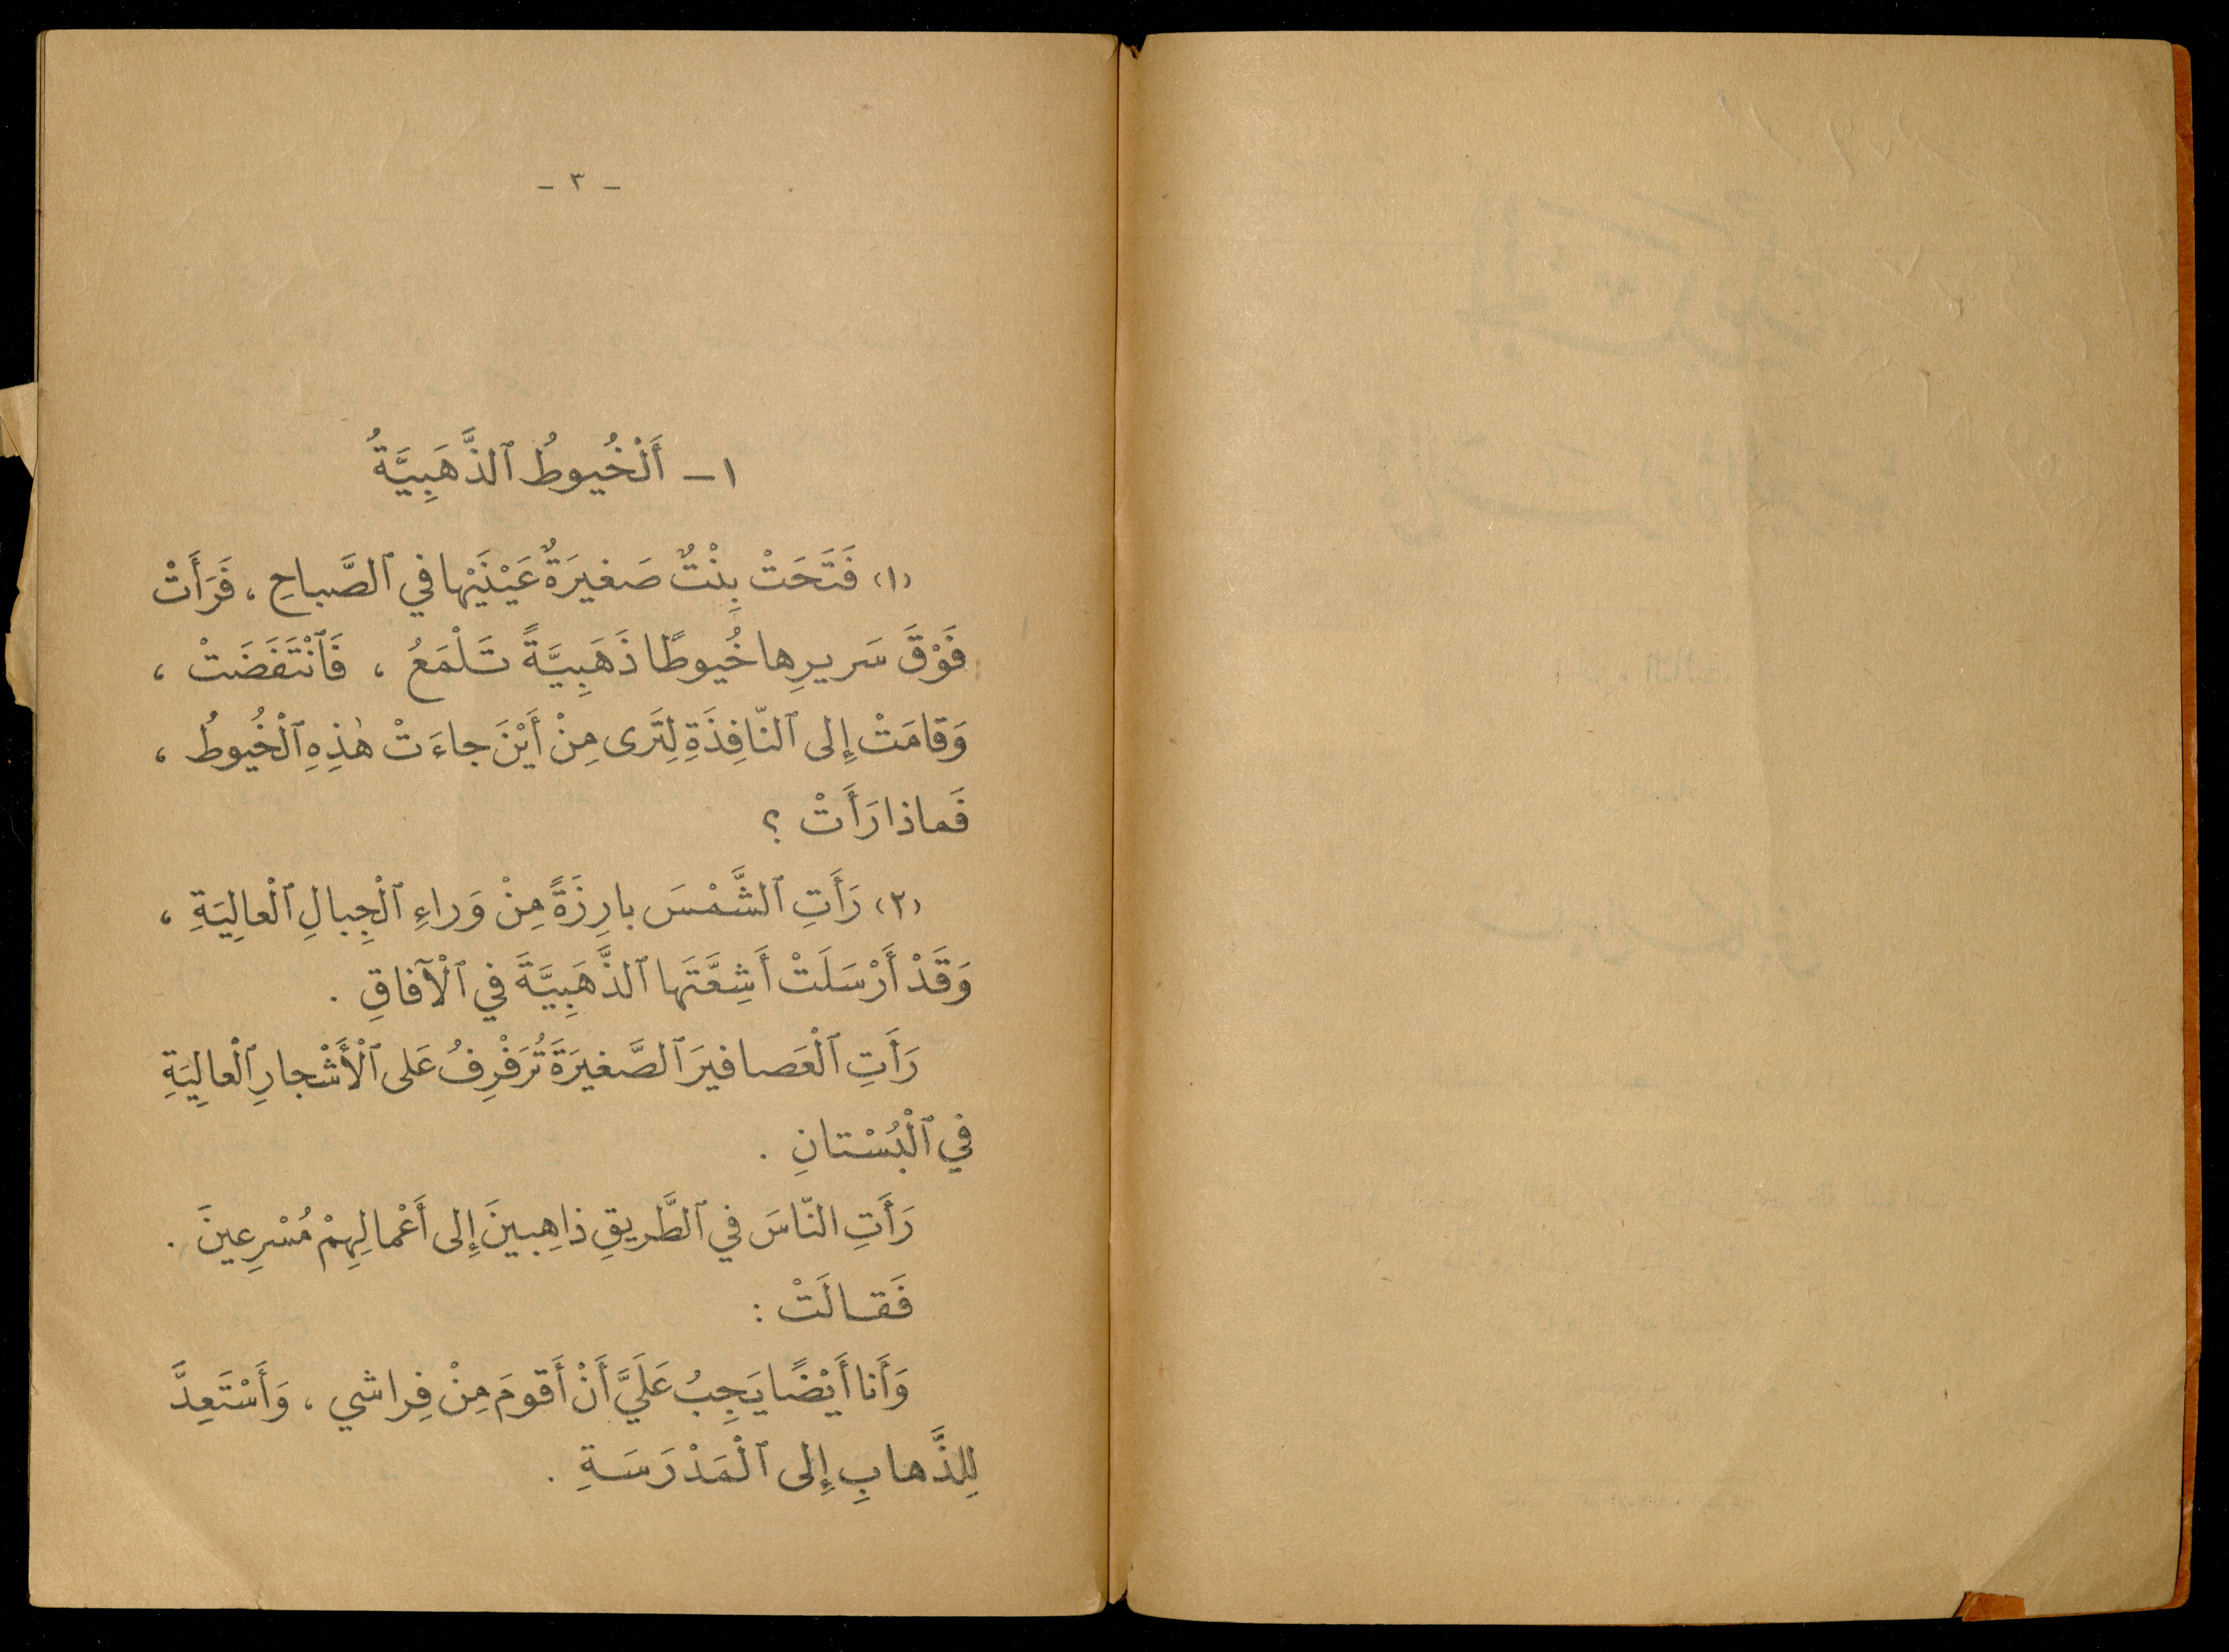 - ٣ -
١ - أَلْخُيوطُ ٱلذَّهَبِيَّةُ
(١) فَتَحَتْ بِنْتٌ صَغيرَةٌ عَيْنَيْها في ٱلصَّباحِ ، فَرَأَتْ
فَوْقَ سَريرِها خُيوطًا ذَهَبِيَّةً تَلْمَعُ ، فَٱنْتَفَضَتْ ،
وَقامَتْ إِلى ٱلنّافِذَةِ لِتَرى مِنْ أَيْنَ جاءَتْ هٰذِهِ ٱلْخُيوطُ ،
فَماذا رَأَتْ ؟
(٢) رَأَتِ ٱلشَّمْسَ بارِزَةً مِنْ وَراءِ ٱلْجِبالِ ٱلْعالِيَةِ ،
وَقَدْ أَرْسَلَتْ أَشِعَّتَها ٱلذَّهَبِيَّةَ في ٱلْآفاقِ .
رَأَتِ ٱلْعَصافيرَ ٱلصَّغيرَةَ تُرَفْرِفُ عَلى ٱلْأَشْجارِ ٱلْعالِيَةِ
في ٱلْبُسْتانِ .
رَأَتِ النّاسَ في ٱلطَّريقِ ذاهِبينَ إِلى أَعْمالِهِمْ مُسْرِعينَ .
فَقالَتْ :
وَأَنا أَيْضًا يَجِبُ عَلَيَّ أَنْ أَقومَ مِنْ فِراشي ، وَأَسْتَعِدَّ
لِلذَّهابِ إِلى ٱلْمَدْرَسَةِ .